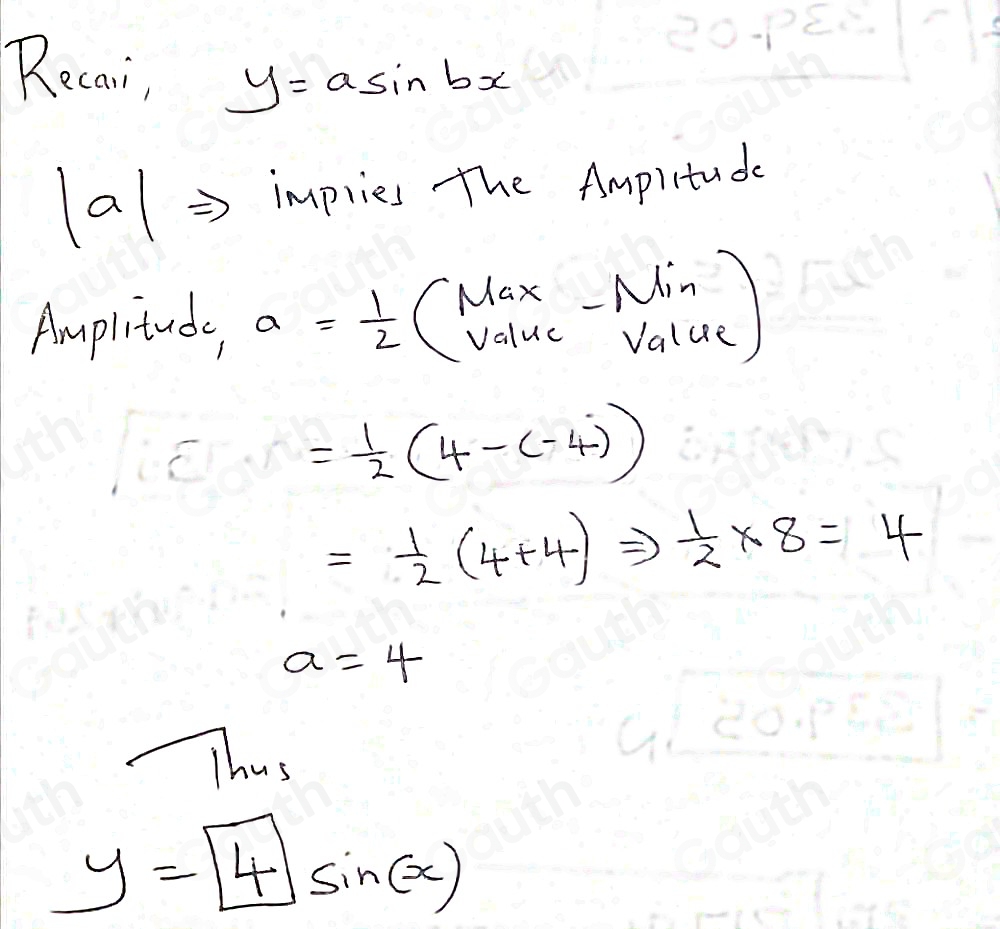 Recall, y = a sin bx
|a| ⇒ implies The Amplitude
Amplitude, a = 1/2 (Max Value - Min Value)
= 1/2 (4 - (-4))
= 1/2 (4+4) ⇒ 1/2 × 8 = 4
a = 4
Thus
y = 4 sin(x)